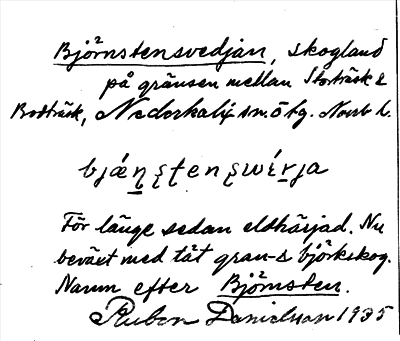 Björnstensvedjan, skogland
på gränsen mellan Storträsk &
Bodträsk, Nederkalix sn. ö tg. Norrb l.
bjǽṇṣṭenṣwérja
För länge sedan eldhärjad. Nu
beväxt med tät gran- & björkskog.
Namn efter Björnsten.
Ruben Danielsson 1935